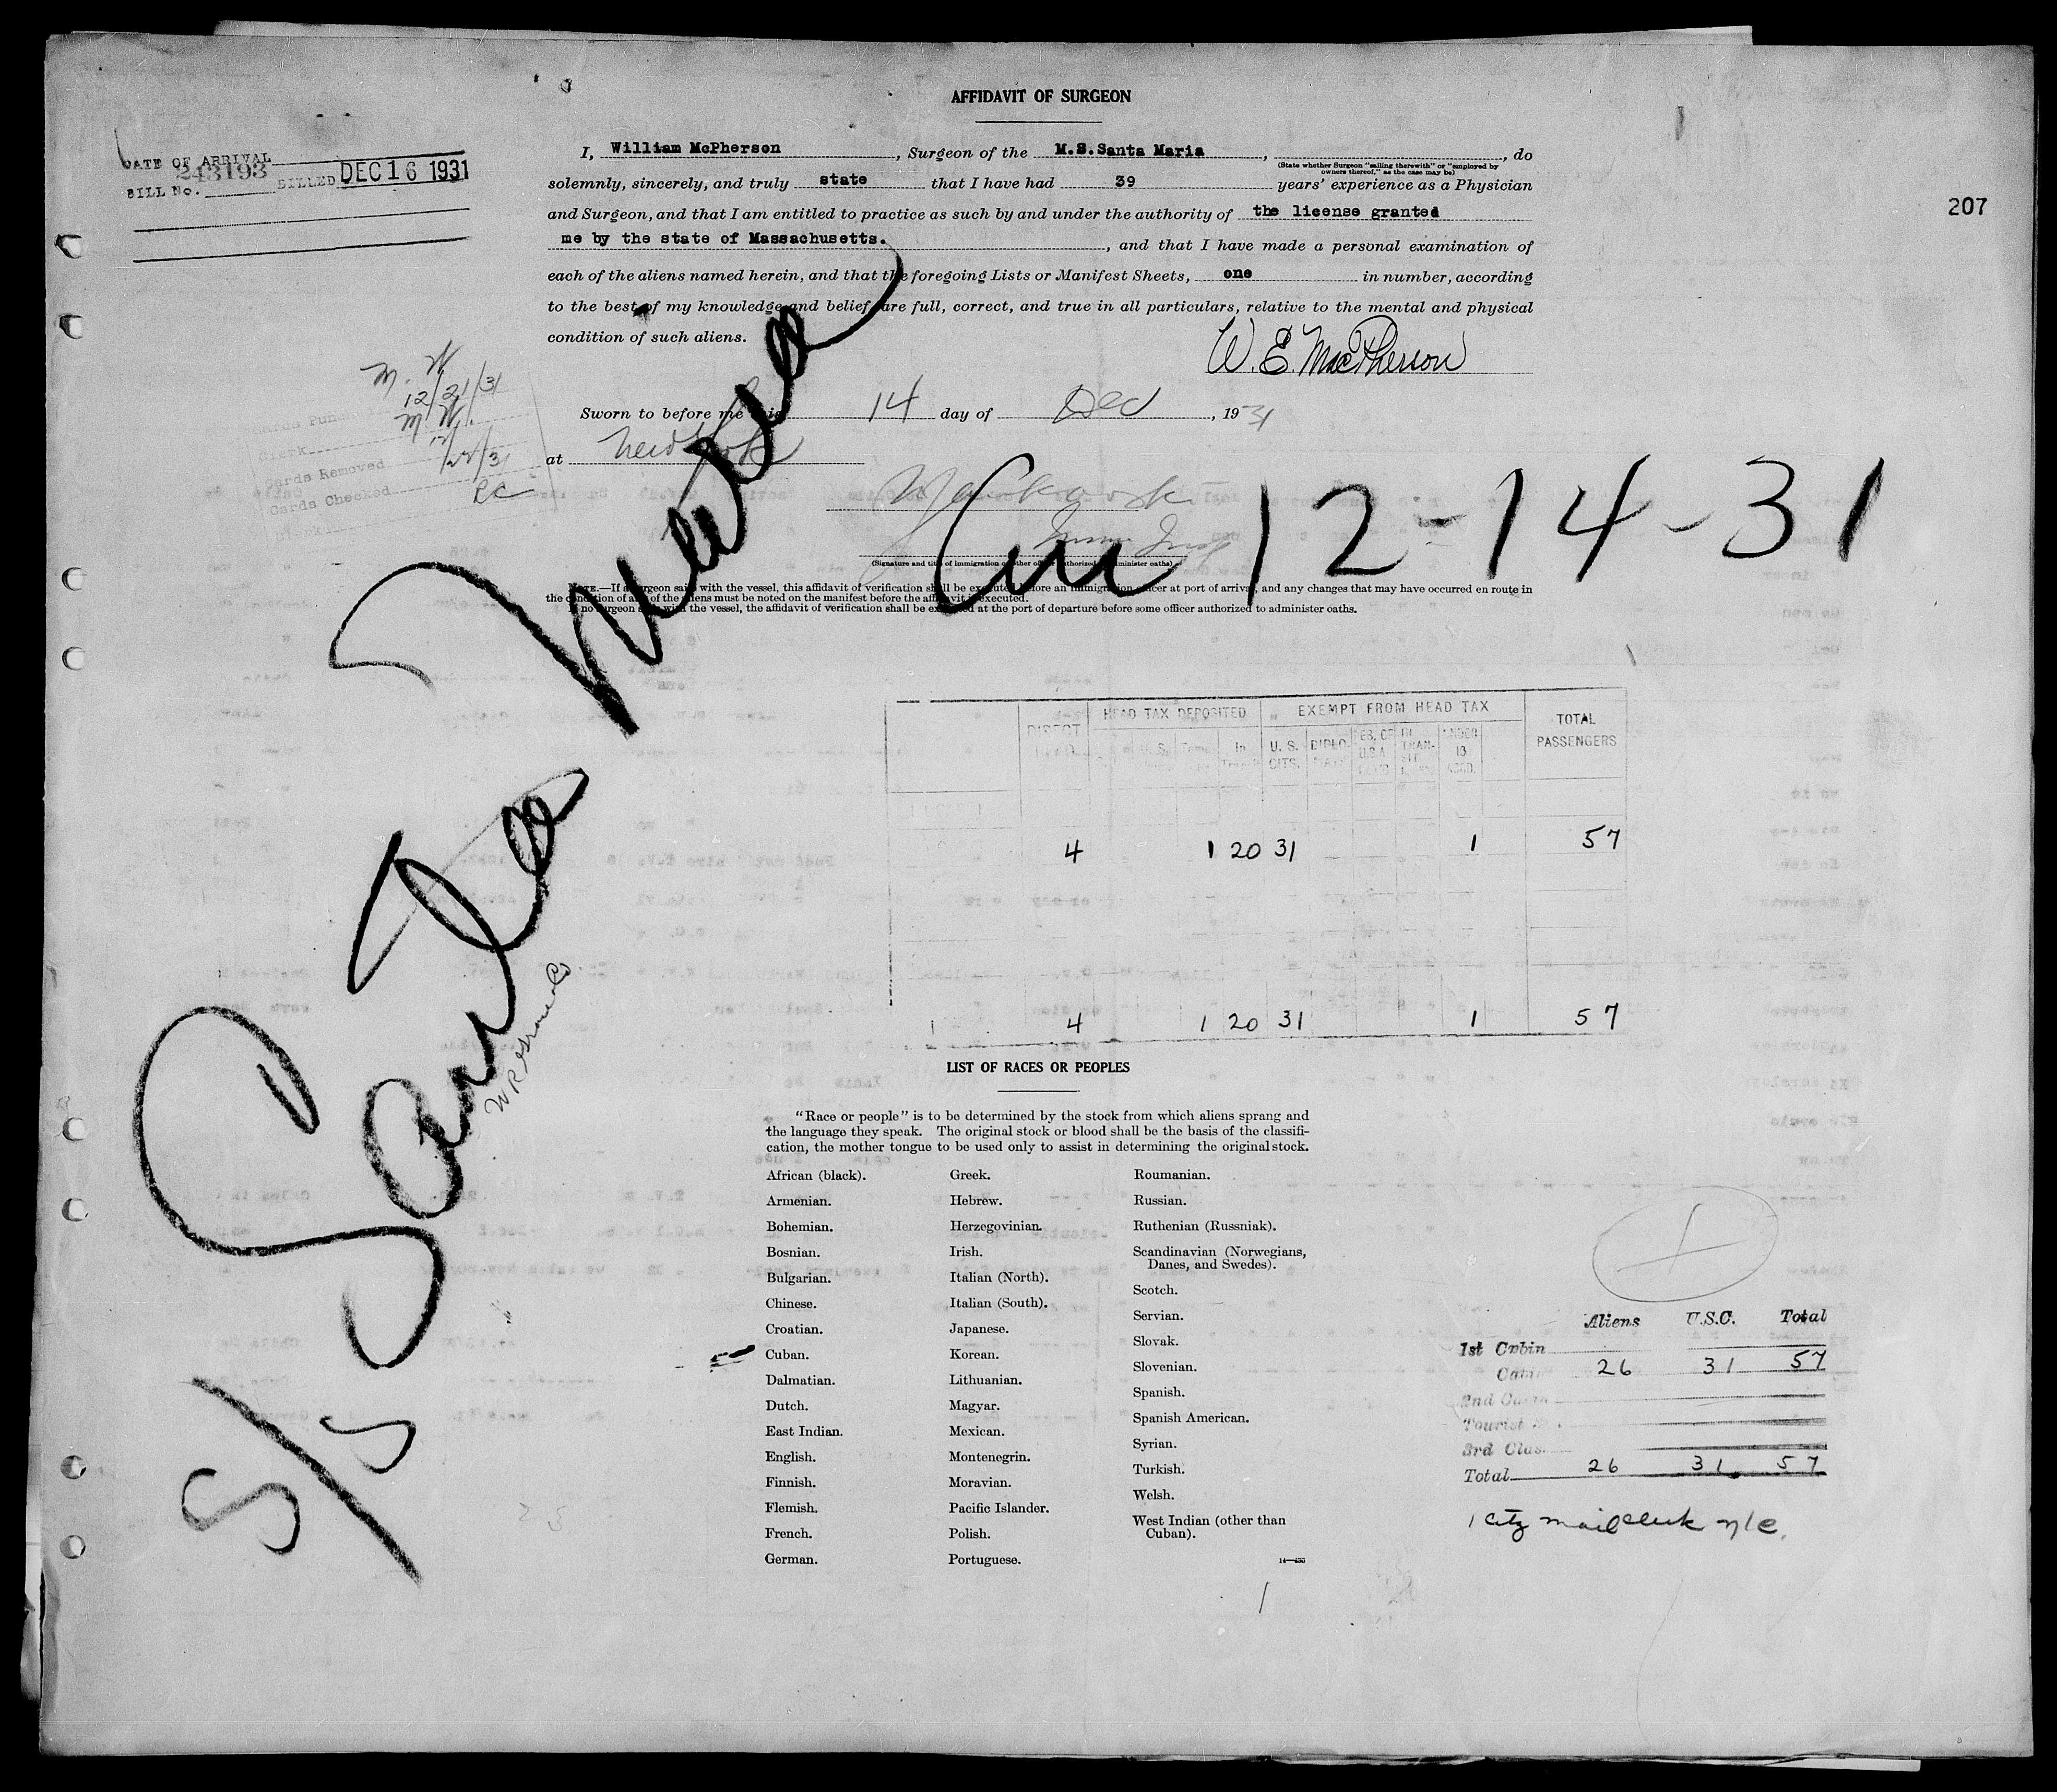 AFFIDAVIT OF SURGEON
DATE OF ARRIVAL
243193
BILL No. BILLED DEC 16 1931
207
I, William McPherson, Surgeon of the M.S.Santa Maria, , do
(State whether Surgeon "sailing therewith" or "employed by owners thereof," as the case may be)
solemnly, sincerely, and truly state that I have had 39 years' experience as a Physician
and Surgeon, and that I am entitled to practice as such by and under the authority of the license granted
me by the state of Massachusetts. , and that I have made a personal examination of
each of the aliens named herein, and that the foregoing Lists or Manifest Sheets, one in number, according
to the best of my knowledge and belief are full, correct, and true in all particulars, relative to the mental and physical
condition of such aliens.
W. E. MacPherson
Sworn to before me this 14 day of Dec , 1931
at New York
Immi Insp
(Signature and title of immigration or other officer authorized to administer oaths)
M. K.
12/21/31
M. K.
Clerk
Cards Removed
Cards Checked
Clerk
Arr 12-14-31
NOTE.—If a surgeon sails with the vessel, this affidavit of verification shall be executed before an immigration officer at port of arrival, and any changes that may have occurred en route in
the condition of any of the aliens must be noted on the manifest before the affidavit is executed.
If no surgeon sails with the vessel, the affidavit of verification shall be executed at the port of departure before some officer authorized to administer oaths.
S/S Santa Maria
DIRECT HEAD TAX DEPOSITED EXEMPT FROM HEAD TAX TOTAL PASSENGERS
U. S. CITS. DIPLO- MATS RES. OF U.S.A. IN TRAN- SIT UNDER 16 ACCD.
4 1 20 31 1 57
4 1 20 31 1 57
LIST OF RACES OR PEOPLES
"Race or people" is to be determined by the stock from which aliens sprang and
the language they speak. The original stock or blood shall be the basis of the classifi-
cation, the mother tongue to be used only to assist in determining the original stock.
African (black).
Armenian.
Bohemian.
Bosnian.
Bulgarian.
Chinese.
Croatian.
Cuban.
Dalmatian.
Dutch.
East Indian.
English.
Finnish.
Flemish.
French.
German.
Greek.
Hebrew.
Herzegovinian.
Irish.
Italian (North).
Italian (South).
Japanese.
Korean.
Lithuanian.
Magyar.
Mexican.
Montenegrin.
Moravian.
Pacific Islander.
Polish.
Portuguese.
Roumanian.
Russian.
Ruthenian (Russniak).
Scandinavian (Norwegians,
Danes, and Swedes).
Scotch.
Servian.
Slovak.
Slovenian.
Spanish.
Spanish American.
Syrian.
Turkish.
Welsh.
West Indian (other than
Cuban).
Aliens U.S.C. Total
1st Cabin
Cabin 26 31 57
2nd Cabin
Tourist
3rd Clas
Total 26 31 57
1 city mail clerk n/c.